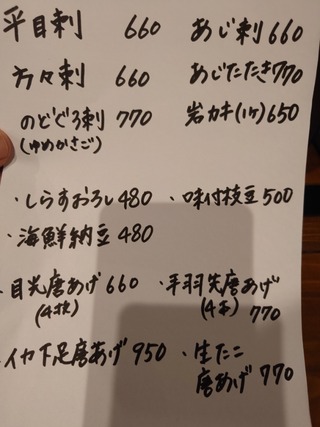 平目刺 660 あじ刺 660
方々刺 660 あじたたき 770
のどぐろ刺 770 岩カキ(1ケ) 650
(ゆめかさご)
・しらすおろし 480 ・味付枝豆 500
・海鮮納豆 480
・目光唐あげ 660 ・手羽先唐あげ
(4枚) (4本) 770
・イカ下足唐あげ 950 ・生たこ
唐あげ 770